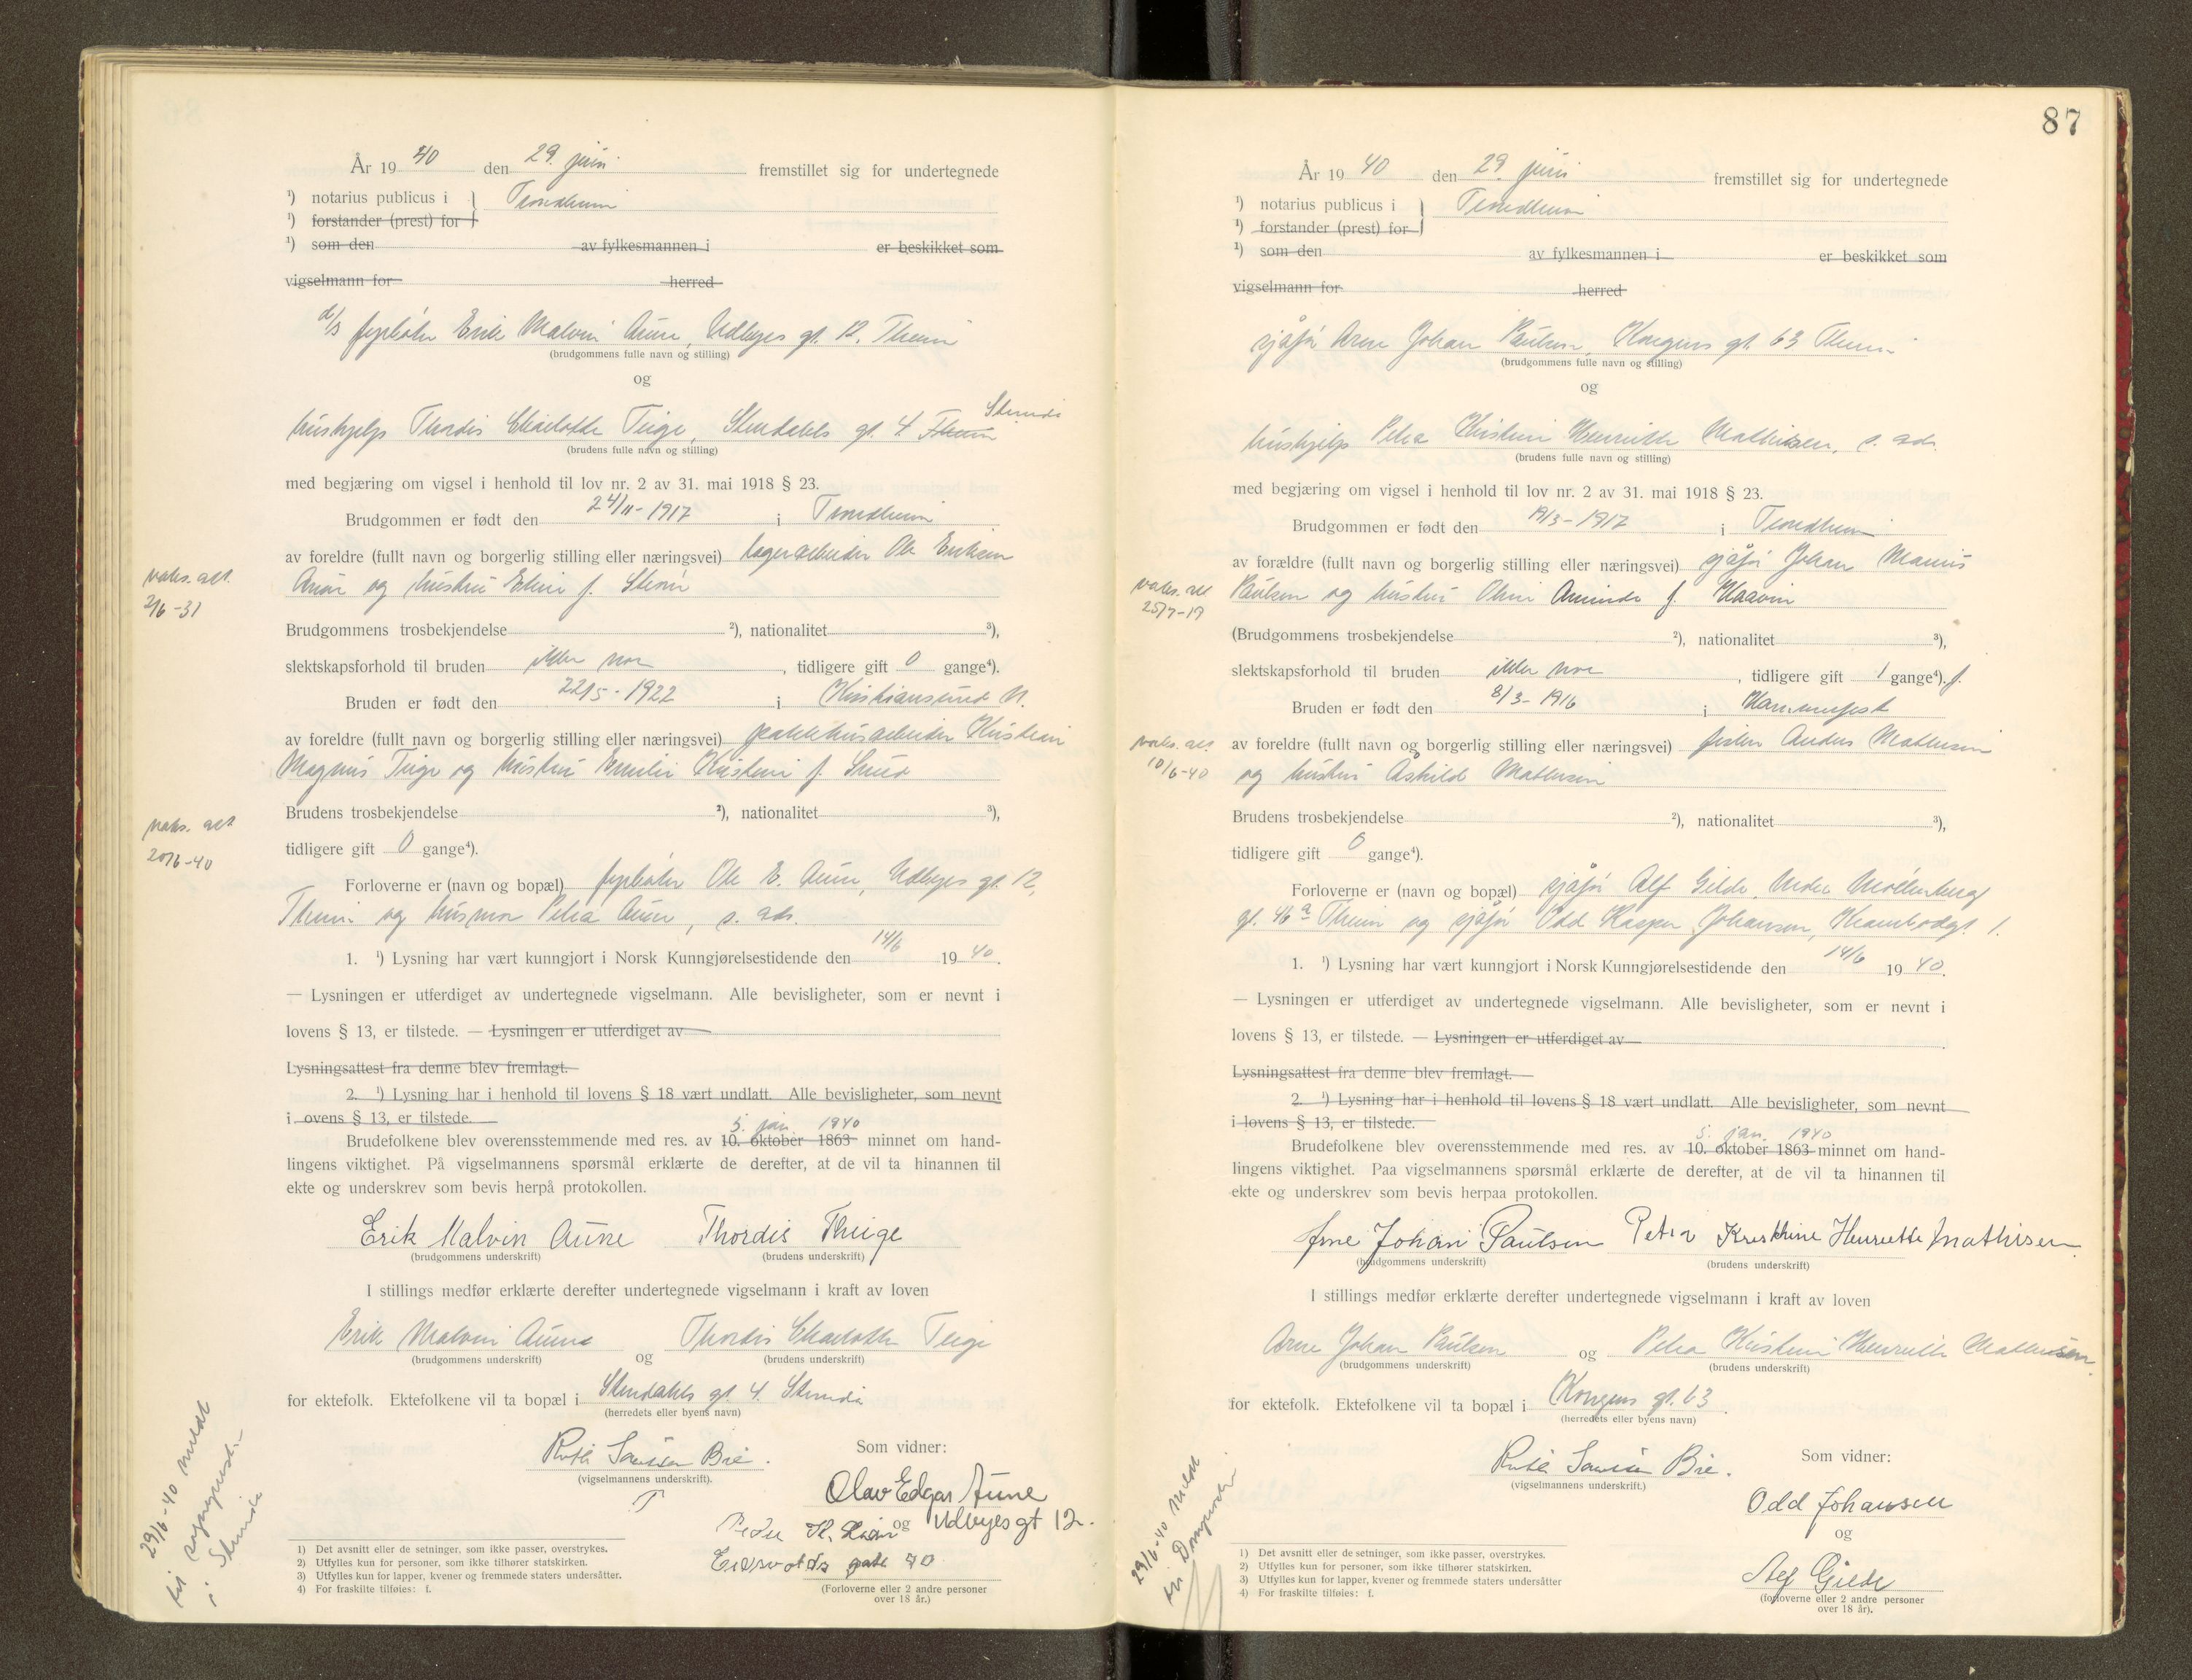 År 19 40 den 29. juni fremstillet sig for undertegnede
¹) notarius publicus i } Trondheim
¹) forstander (prest) for
¹) som den av fylkesmannen i er beskikket som
vigselmann for herred
d/s fyrbøter Erik Malvin Aune, Udbyes gt. 12. Theim
(brudgommens fulle navn og stilling)
og
Strinda
hushjelp Thordis Charlotte Teige, Stendahls gt. 4 Theim
(brudens fulle navn og stilling)
med begjæring om vigsel i henhold til lov nr. 2 av 31. mai 1918 § 23.
Brudgommen er født den 24/11-1917 i Trondheim
av foreldre (fullt navn og borgerlig stilling eller næringsvei) lagerarbeider Ole Eriksen
Aune og hustru Eline f.
vaks. att.
2/6-31
Brudgommens trosbekjendelse ²), nationalitet ³),
slektskapsforhold til bruden ikke noe , tidligere gift 0 gange⁴).
Bruden er født den 22/5-1922 i Kristiansund N.
av foreldre (fullt navn og borgerlig stilling eller næringsvei) pakkhusarbeider Kristian
Magnus Teige og hustru Emilie Kristine f.
vaks. att
20/6-40
Brudens trosbekjendelse ²), nationalitet ³),
tidligere gift 0 gange⁴).
Forloverne er (navn og bopæl) fyrbøter Ole E. Aune, Udbyes gt. 12,
Theim og husmor Petra Aune, s. ads.
1. ¹) Lysning har vært kunngjort i Norsk Kunngjørelsestidende den 14/6 19 40.
— Lysningen er utferdiget av undertegnede vigselmann. Alle bevisligheter, som er nevnt i
lovens § 13, er tilstede. — Lysningen er utferdiget av
Lysningsattest fra denne blev fremlagt.
2. ¹) Lysning har i henhold til lovens § 18 vært undlatt. Alle bevisligheter, som nevnt
i ovens § 13, er tilstede.
5. jan. 1940
Brudefolkene blev overensstemmende med res. av 10. oktober 1863 minnet om hand-
lingens viktighet. På vigselmannens spørsmål erklærte de derefter, at de vil ta hinannen til
ekte og underskrev som bevis herpå protokollen.
Erik Malvin Aune Thordis Theige
(brudgommens underskrift) (brudens underskrift)
I stillings medfør erklærte derefter undertegnede vigselmann i kraft av loven
Erik Malvin Aune og Thordis Charlotte Teige
(brudgommens underskrift) (brudens underskrift)
for ektefolk. Ektefolkene vil ta bopæl i Stendahls gt. 4. Strinda
(herredets eller byens navn)
Bie.
(vigselmannens underskrift).
Som vidner:
Olav Edgar Aune
og Udbyesgt 12.
Peder H.
gate 70
(Forloverne eller 2 andre personer
over 18 år.)
29/6-40 meldt
til sogneprest
i Strinda
1) Det avsnitt eller de setninger, som ikke passer, overstrykes.
2) Utfylles kun for personer, som ikke tilhører statskirken.
3) Utfylles kun for lapper, kvener og fremmede staters undersåtter.
4) For fraskilte tilføies: f.
87
År 19 40 den 29. juni fremstillet sig for undertegnede
¹) notarius publicus i } Trondheim
¹) forstander (prest) for
¹) som den av fylkesmannen i er beskikket som
vigselmann for herred
sjåfør Arne Johan Paulsen, Kongens gt. 63 Theim
(brudgommens fulle navn og stilling)
og
hushjelp Petra Kristine Henriette Mathisen, s. ads.
(brudens fulle navn og stilling)
med begjæring om vigsel i henhold til lov nr. 2 av 31. mai 1918 § 23.
Brudgommen er født den 19/3-1917 i Trondheim
av forældre (fullt navn og borgerlig stilling eller næringsvei) sjåfør Johan
Paulsen og hustru Oline f.
vaks. att
25/7-19
(Brudgommens trosbekjendelse ²), nationalitet ³),
slektskapsforhold til bruden ikke noe , tidligere gift 1 gange⁴). f.
Bruden er født den 8/3-1916 i Hammerfest
av foreldre (fullt navn og borgerlig stilling eller næringsvei) fisker Anders Mathisen
og hustru Åshild Mathisen
vaks. att
10/6-40
Brudens trosbekjendelse ²), nationalitet ³),
tidligere gift 0 gange⁴).
Forloverne er (navn og bopæl) sjåfør Alf Gilde, Nedre Møllenberg
gt. 46 a Theim og sjåfør Odd Kasper Johansen, Krambodgt. 1.
1. ¹) Lysning har vært kunngjort i Norsk Kunngjørelsestidende den 14/6 19 40.
— Lysningen er utferdiget av undertegnede vigselmann. Alle bevisligheter, som er nevnt i
lovens § 13, er tilstede. — Lysningen er utferdiget av
Lysningsattest fra denne blev fremlagt.
2. ¹) Lysning har i henhold til lovens § 18 vært undlatt. Alle bevisligheter, som nevnt
i lovens § 13, er tilstede.
5. jan. 1940
Brudefolkene blev overensstemmende med res. av 10. oktober 1863 minnet om hand-
lingens viktighet. Paa vigselmannens spørsmål erklærte de derefter, at de vil ta hinannen til
ekte og underskrev som bevis herpaa protokollen.
Arne Johan Paulsen Petra Kristine Henriette Mathisen
(brudgommens underskrift) (brudens underskrift)
I stillings medfør erklærte derefter undertegnede vigselmann i kraft av loven
Arne Johan Paulsen og Petra Kristine Henriette Mathisen
(brudgommens underskrift) (brudens underskrift)
for ektefolk. Ektefolkene vil ta bopæl i Kongens gt. 63
(herredets eller byens navn)
Bie.
(vigselmannens underskrift.)
Som vidner:
Odd Johansen
og
Alf Gilde
(forloverne eller 2 andre personer
over 18 år).
29/6-40 meldt
til Domprosten
1) Det avsnitt eller de setninger, som ikke passer, overstrykes.
2) Utfylles kun for personer, som ikke tilhører statskirken.
3) Utfylles kun for lapper, kvener og fremmede staters undersåtter
4) For fraskilte tilføies: f.